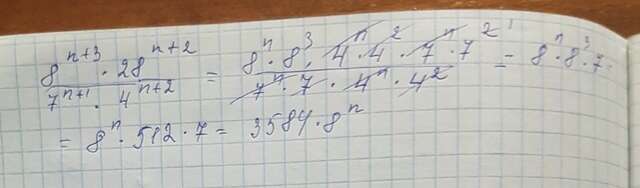 8^{n+3} · 28^{n+2} / 7^{n+1} · 4^{n+2} = 8^n · 8^3 · 4^n · 4^2 · 7^n · 7^{2 1} / 7^n · 7 · 4^n · 4^2 = 8^n · 8^3 · 7 =
= 8^n · 512 · 7 = 3584 · 8^n